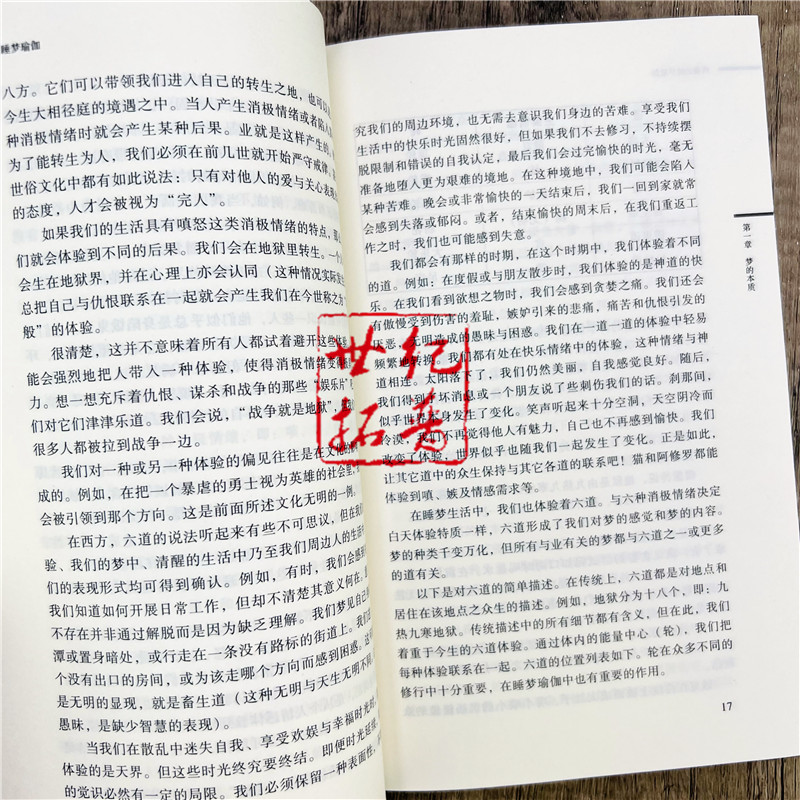 睡梦瑜伽
八方。它们可以带领我们进入自己的转生之地，也可以
今生大相径庭的境遇之中。当人产生消极情绪或者陷入某
种消极情绪时就会产生某种后果。业就是这样产生的。
为了能转生为人，我们必须在前几世就开始严守戒律，
世俗文化中都有如此说法：只有对他人的爱与关心表现
的态度，人才会被视为“完人”。
如果我们的生活具有嗔怒这类消极情绪的特点，那
们就会体验到不同的后果。我们会在地狱里转生。一个
会生在地狱界，并在心理上亦会认同（这种情况实际发
总把自己与仇恨联系在一起就会产生我们在今世称之为
般”的体验。
很清楚，这并不意味着所有人都试着避开这些
能会强烈地把人带入一种体验，使得消极情绪变得
力。想一想充斥着仇恨、谋杀和战争的那些“娱乐片”
们对它们津津乐道。我们会说，“战争就是地狱”，
很多人都被拉到战争一边。
我们对一种或另一种体验的偏见往往是在文化的
成的。例如，在把一个暴虐的勇士视为英雄的社会里，
会被引领到那个方向。这是前面所述文化无明的一例。
在西方，六道的说法听起来有些不可思议，但在我
验、我们的梦中、清醒的生活中乃至我们周边人的生活
们的表现形式均可得到确认。例如，有时，我们会感到
我们知道如何开展日常工作，但却不清楚其意义何在，
不存在并非通过解脱而是因为缺乏理解。我们梦见自己
潭或置身暗处，或行走在一条没有路标的街道上。我们
个没有出口的房间，或为该走哪个方向而感到困惑。这
是无明的显现，就是畜生道（这种无明与天生无明不同，
愚昧，是缺少智慧的表现）。
当我们在散乱中迷失自我、享受欢娱与幸福时光时，
体验的是天界。但这些时光终究要终结。即便时光延续，
的觉识必然有一定的局限。我们必须保留一种表面性，
究我们的周边环境，也无需去意识我们身边的苦难。享受我们
生活中的快乐时光固然很好，但如果我们不去修习，不持续摆
脱限制和错误的自我认定，最后我们会过完愉快的时光，毫无
准备地堕入更为艰难的境地。在这种境地中，我们可能会陷入
某种苦难。晚会或非常愉快的一天结束后，我们一回到家就常
会感到失落或郁闷。或者，结束愉快的周末后，在我们重返工
作之时，我们也可能感到失意。
我们都会有那样的时期，在这个时期中，我们体验着不同
的道。例如：在度假或与朋友散步时，我们体验的是神道的快
乐。在我们看到欲想之物时，我们会感到贪婪之痛。我们还会
有傲慢受到伤害的羞耻，嫉妒引来的悲痛，痛苦和仇恨引发的
恶，无明造成的愚昧与困惑。我们在一道一道的体验中轻易
频繁地转换。我们都有处在快乐情绪中的体验，这种情绪与神
道相连。太阳落下了，我们仍然美丽，自我感觉良好。随后，
我们得到了坏消息或一个朋友说了些刺伤我们的话。刹那间，
似乎世界本身发生了变化。笑声听起来十分空洞，天空阴冷而
冷漠，我们不再觉得他人有魅力，自己也不再感到愉快。我们
改变了体验，世界似也随我们一起发生了变化。正是如此，
让其它道中的众生保持与其它各道的联系吧！猫和阿修罗都能
体验到嗔、嫉及情感需求等。
在睡梦生活中，我们也体验着六道。与六种消极情绪决定
白天体验特质一样，六道形成了我们对梦的感觉和梦的内容。
梦的种类千变万化，但所有与业有关的梦都与六道之一或更多
的道有关。
以下是对六道的简单描述。在传统上，六道都是对地点和
居住在该地点之众生的描述。例如，地狱分为十八个，即：九
热九寒地狱。传统描述中的所有细节都有含义，但在此，我们
着重于今生的六道体验。通过体内的能量中心（轮），我们把
每种体验联系在一起。六道的位置列表如下。轮在众多不同的
修行中十分重要，在睡梦瑜伽中也有重要的作用。
第一章 梦的本质
17
世纪
拓番